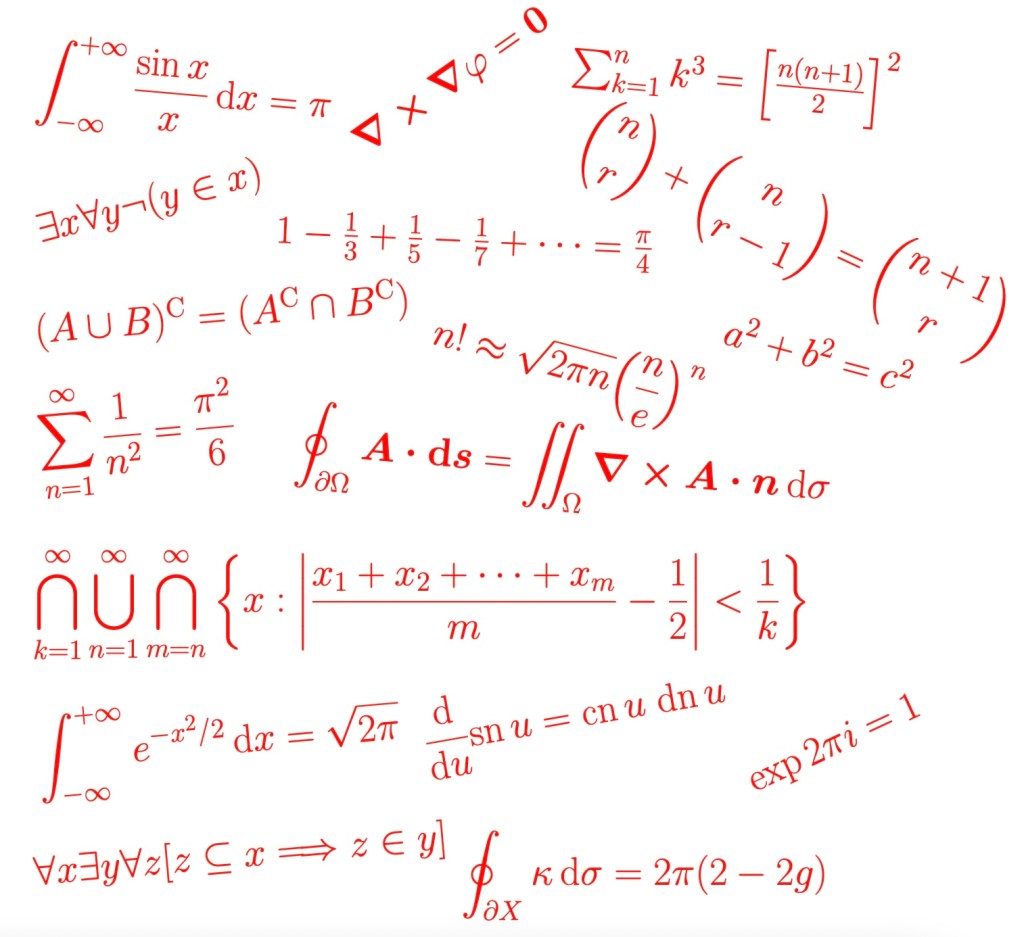 ∫_{−∞}^{+∞} \frac{sin x}{x} dx = π
∇ + ∇φ = 0
∑_{k=1}^{n} k³ = [\frac{n(n+1)}{2}]²
∃x∀y¬(y ∈ x)
1 − \frac{1}{3} + \frac{1}{5} − \frac{1}{7} + ⋯ = \frac{π}{4}
\binom{n}{r} + \binom{n}{r − 1} = \binom{n + 1}{r}
(A ∪ B)^C = (A^C ∩ B^C)
n! ≈ √{2πn} (\frac{n}{e})^n
a² + b² = c²
∑_{n=1}^{∞} \frac{1}{n²} = \frac{π²}{6}
∮_{∂Ω} A · ds = ∬_{Ω} ∇ × A · n dσ
⋂_{k=1}^{∞} ⋃_{n=1}^{∞} ⋂_{m=n}^{∞} {x : |\frac{x_1 + x_2 + ⋯ + x_m}{m} − \frac{1}{2}| < \frac{1}{k}}
∫_{−∞}^{+∞} e^{−x²/2} dx = √{2π}
\frac{d}{du} sn u = cn u dn u
exp 2πi = 1
∀x∃y∀z[z ⊆ x ⟹ z ∈ y]
∮_{∂X} κ dσ = 2π(2 − 2g)